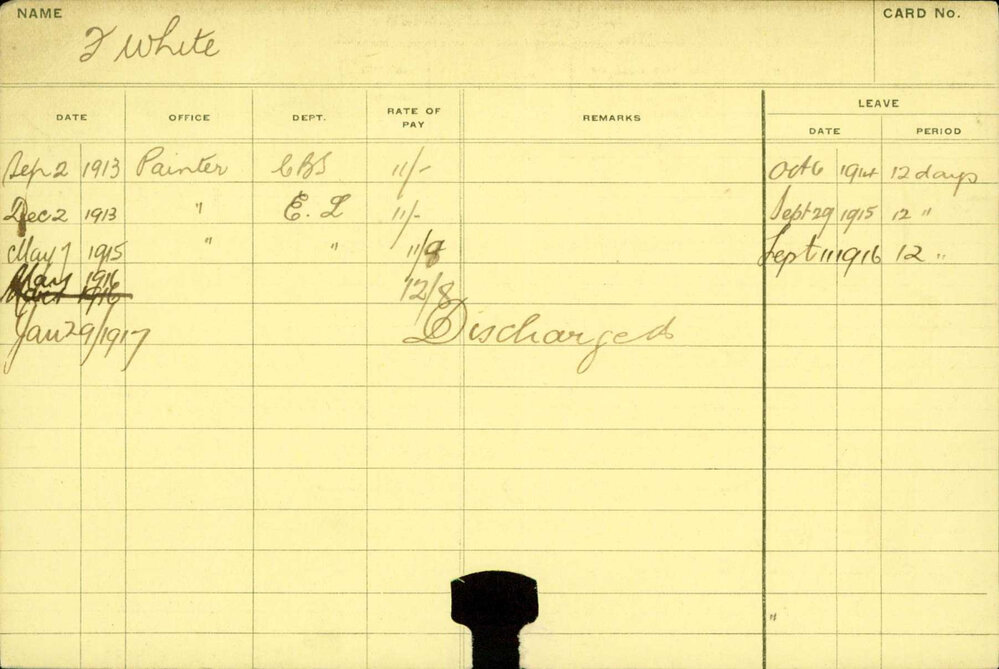 NAME
CARD No.
F White
LEAVE
DATE OFFICE DEPT. RATE OF PAY REMARKS DATE PERIOD
Sep 2 1913 Painter CBS 11/- Oct 6 1914 12 days
Dec 2 1913 " E. L 11/- Sept 29 1915 12 "
May 7 1915 " " 11/8 Sept 11 1916 12 "
1916 12/8
1916
Jan 29/1917 Discharged
"